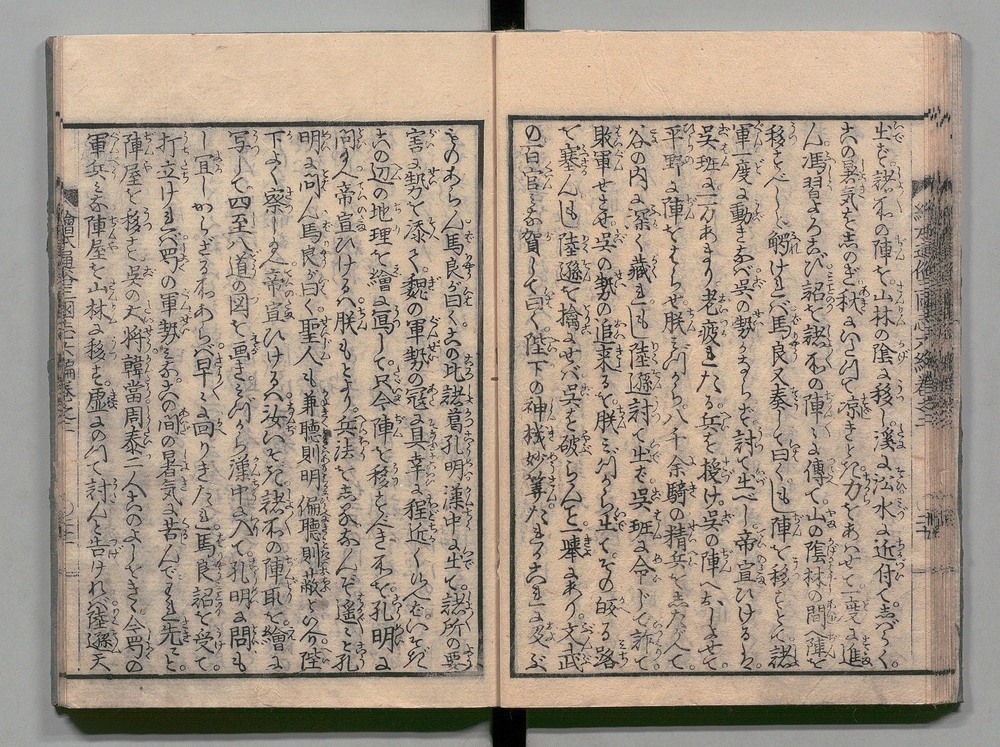 出を諸所の陣を山林の陰に移し溪に沿水に近付てしばらく
この暑氣をしのぎ秋にいたつて凉きとき力をあはせて一度に進
ん馮習よろこび詔を諸所の陣に傳て山の陰林の間に陣を
移すべしと觸ければ馬良又奏して曰くもし陣を移すとて諸
軍一度に動きなば呉の勢かならず討て出べし帝宣ひけるは
呉班に一万あまり老疲れたる兵を授け呉の陣へおしよせて
平野に陣をはらせ朕みづから八千余騎の精兵をしたがへて
谷の内に深く藏れもし陸遜討て出ば呉班に令じて詐て
敗軍せさせ呉の勢の追来るを朕みづから出てその歸る路
を塞んもし陸遜を擒にせば呉を破らんこと一挙にあり文武
の百官みな賀して曰く陛下の神機妙筭たれかこれに及ぶ
ものあらん馬良が曰くこの比諸葛孔明漢中に出て諸所の要
害に勢を添て魏の軍勢の冦に具ふ幸に程近く候へばいそぎ
この辺の地理を繪に写して只今陣を移すべき所を孔明に
問たまへ帝宣ひけるは朕もとより兵法をしるなんぞ遥々と孔
明に問ん馬良が曰く聖人も兼聴則明偏聴則蔽といへり陛
下よく察したまへ帝宣ひけるは汝いそぎ諸所の陣取を繪に
写して四至八道の図を画きみづから漢中に入て孔明に問も
し冝しからざる所あらば早々に向りきたれ馬良詔を受て
打立ければ蜀の軍勢みなこの間の暑氣に苦んでわれ先にと
陣屋を移す呉の大将韓當周泰二人このよしをきゝ今蜀の
軍兵みな陣屋を山林に移す虚にのつて討んと告ければ陸遜大